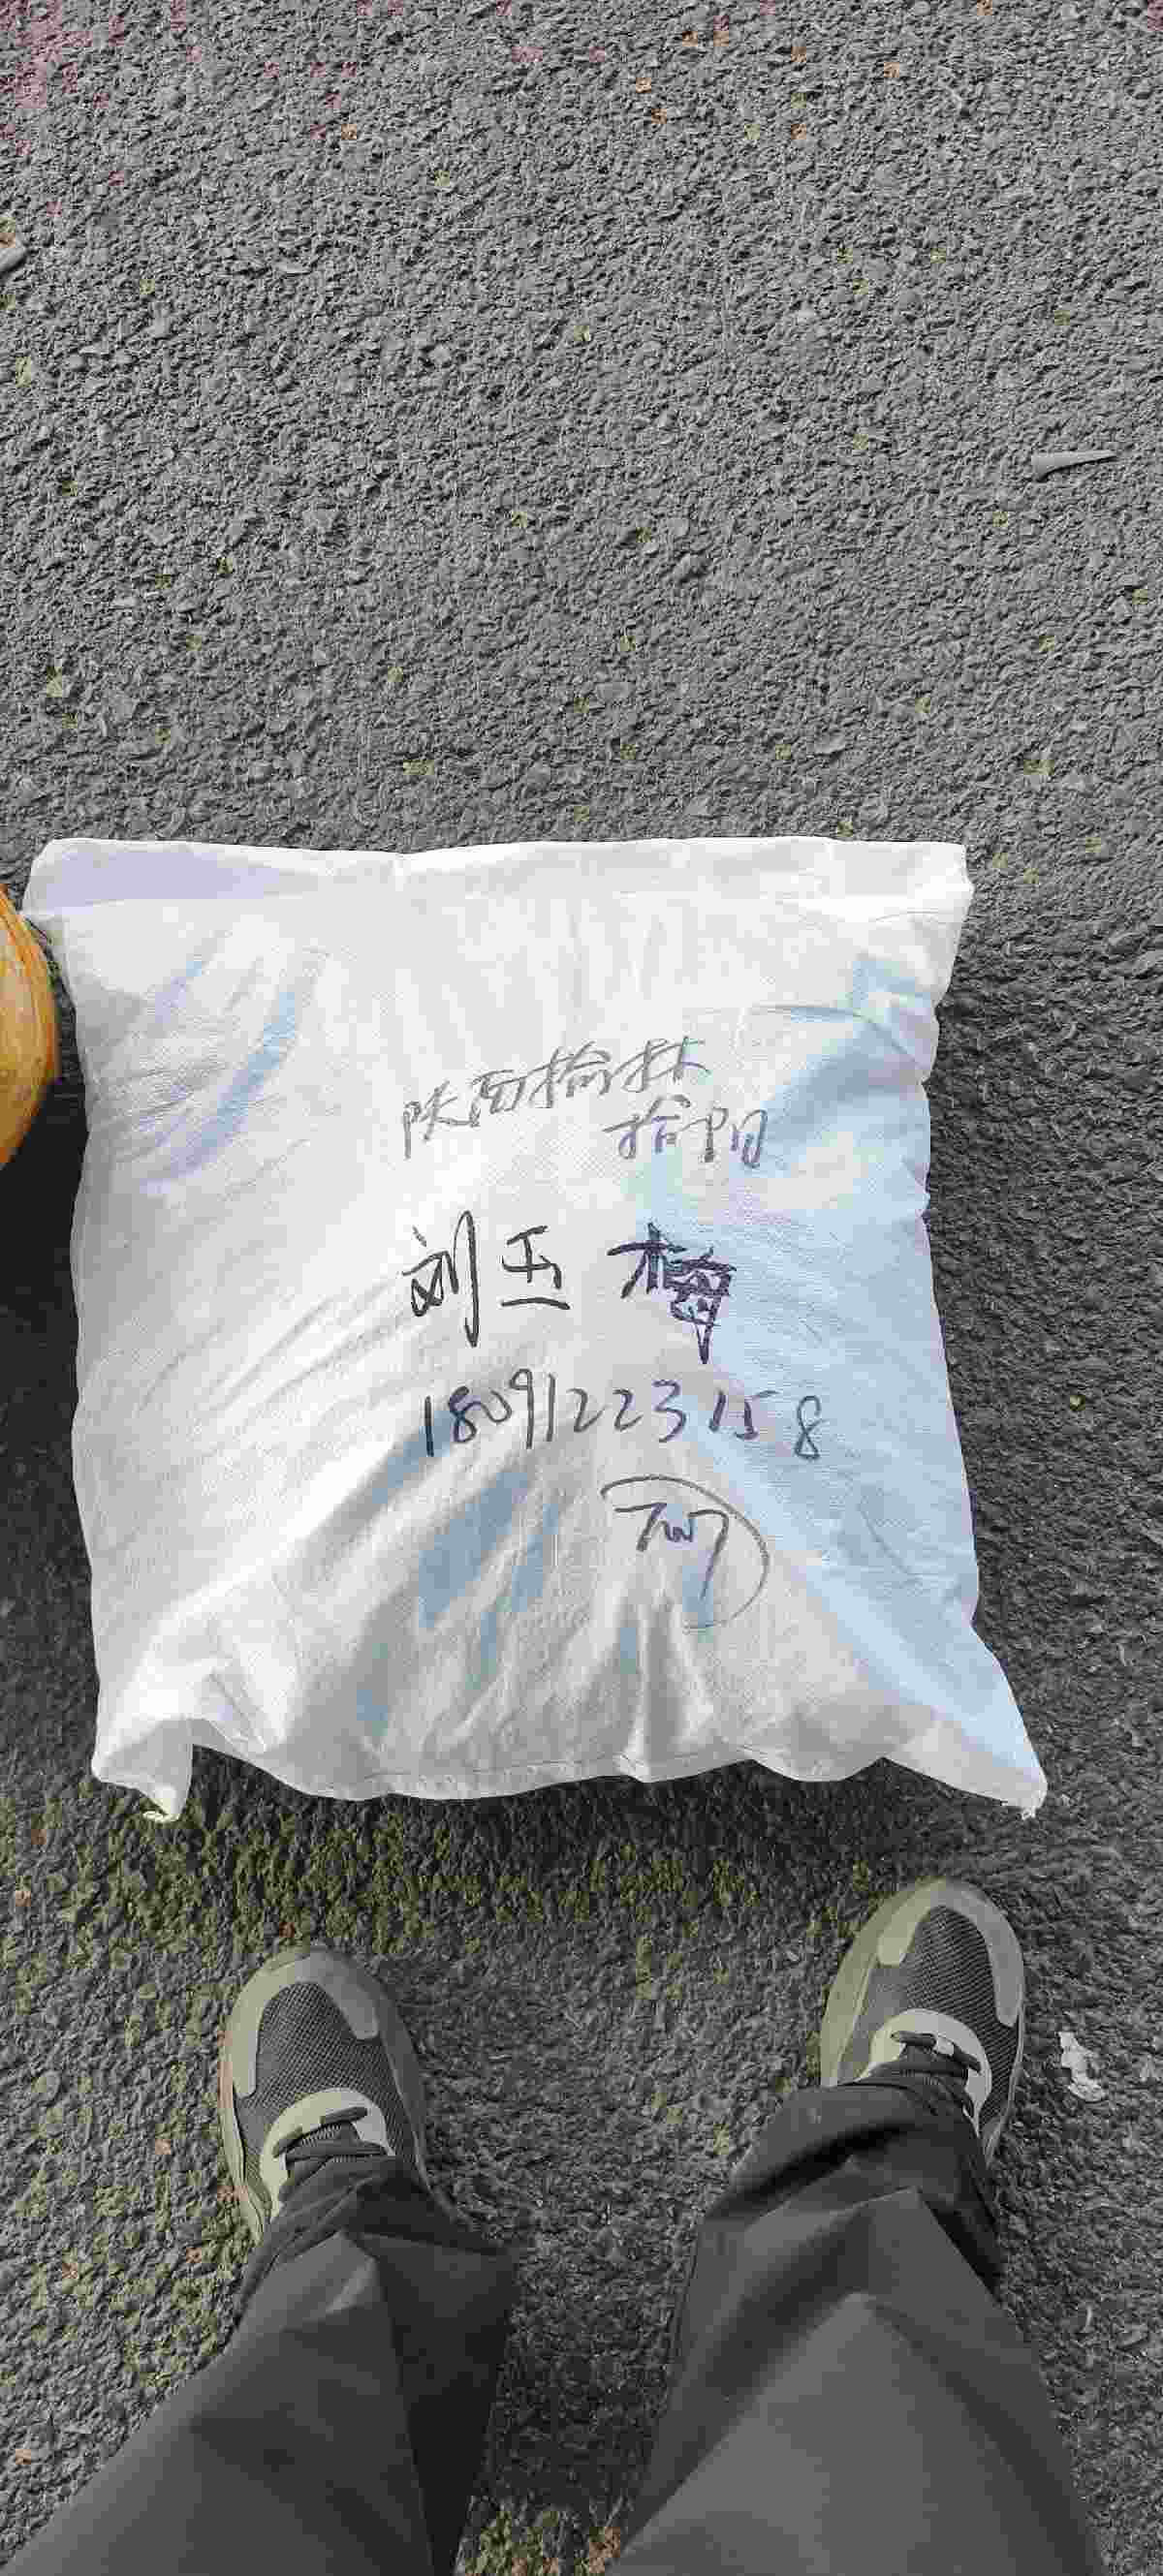 陕西榆林
榆阳
刘玉梅
18091223158